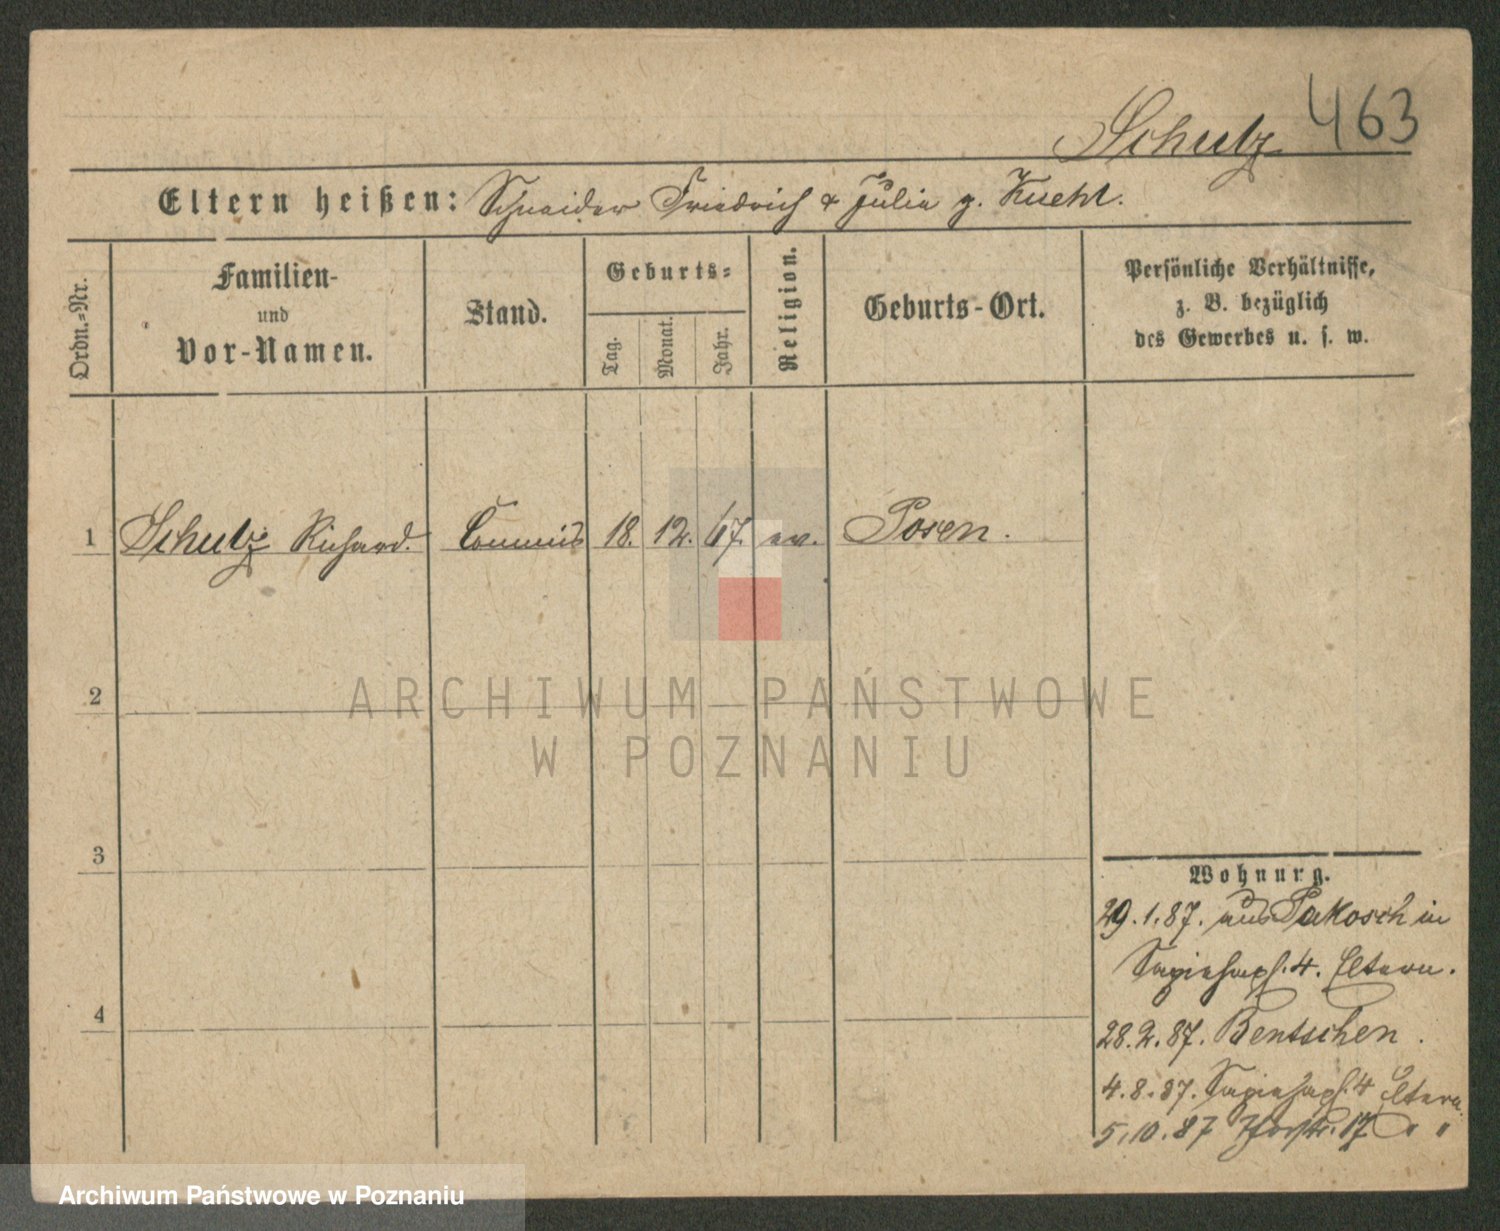 Schulz 463
Eltern heißen: Schneider Friedrich & Julia g. Kuehl.
Ordn.-Nr.
Familien-
und
Vor-Namen.
Stand.
Geburts-
Tag.
Monat.
Jahr.
Religion.
Geburts-Ort.
Persönliche Verhältnisse,
z. B. bezüglich
des Gewerbes u. s. w.
1 Schulz Richard. Commis 18. 12. 67. ev. Posen.
2
ARCHIWUM PAŃSTWOWE
W POZNANIU
3
Wohnung.
29.1.87. aus Pakosch in
Sapiehapl. 4. Eltern.
4
28.2.87. Bentschen.
4.8.87. Sapiehapl. 4 Eltern.
5.10.87 17 " "
Archiwum Państwowe w Poznaniu